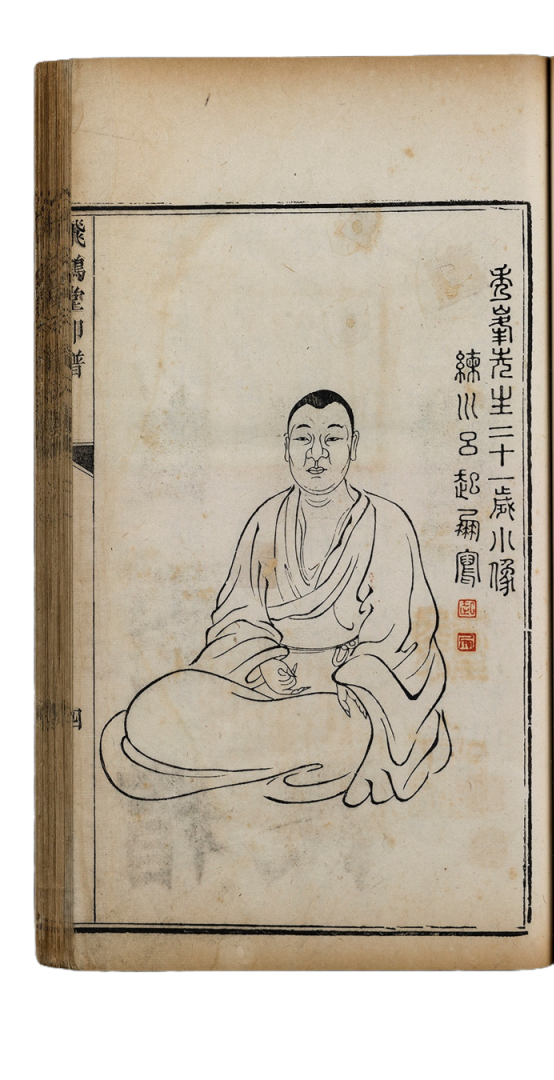 秀峯先生二十一歲小像
練川呂起寫
飛鴻堂印譜
四